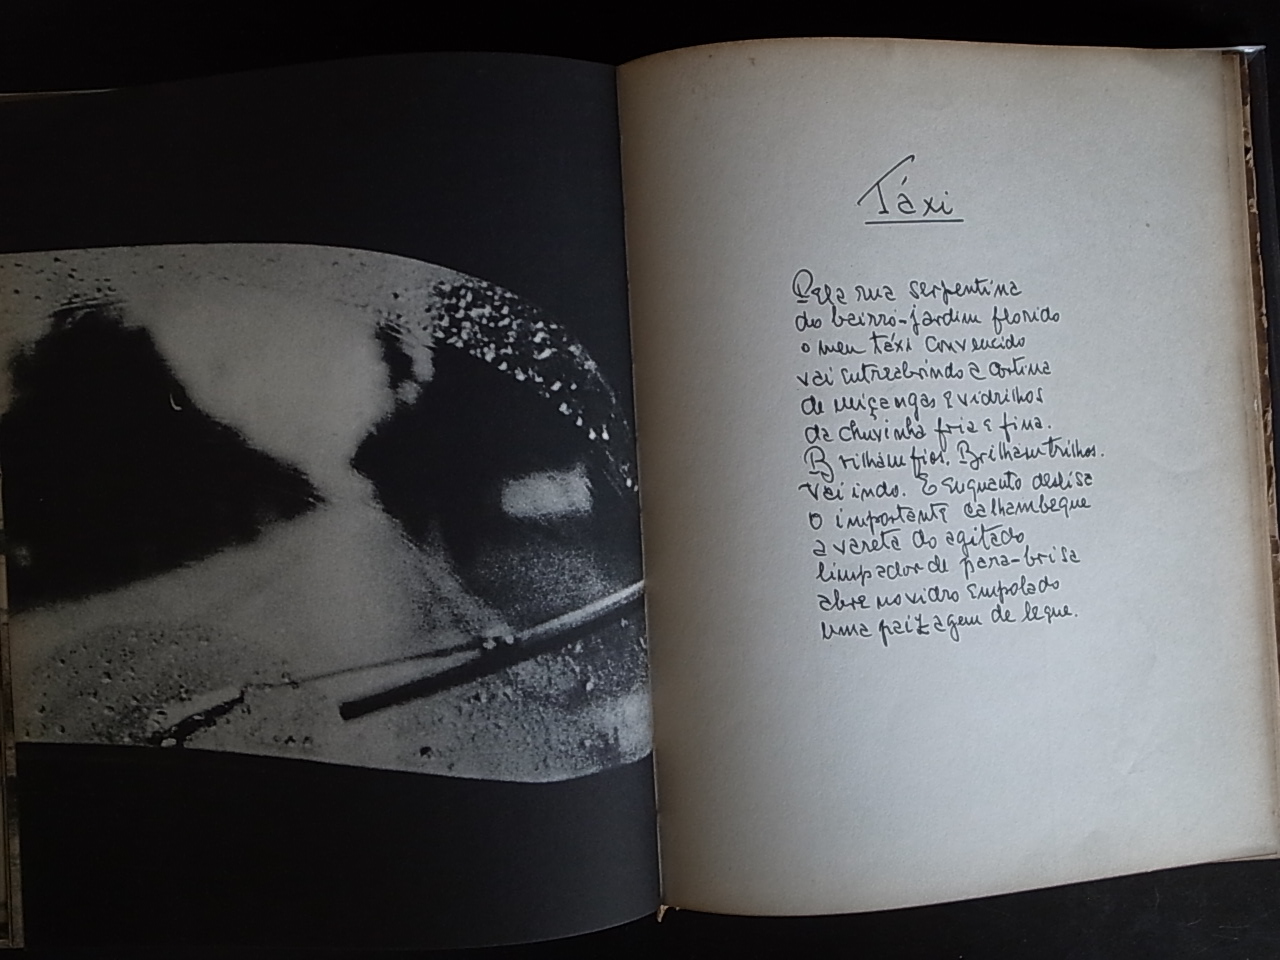 Táxi
Pela rua serpentina
do bairro-jardim florido
o meu táxi convencido
vai entreabrindo a cortina
de miçangas e vidrilhos
da chuvinha fria e fina.
Brilham fios. Brilham trilhos.
Vai indo. E enquanto deslisa
o importante calhambeque
a vareta do agitado
limpador de para-brisa
abre no vidro empolado
uma paizagem de leque.